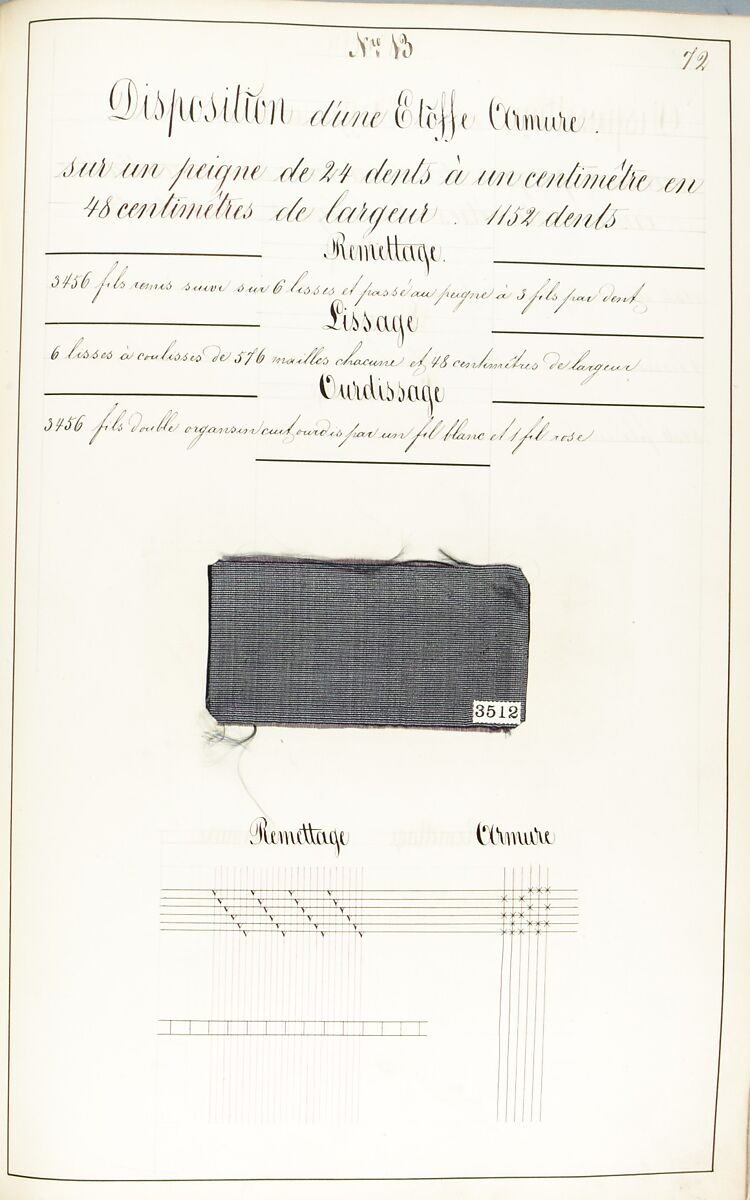 Nro 13
72
Disposition d'une Etoffe Armure.
sur un peigne de 24 dents à un centimètre en
48 centimètres de largeur. 1152 dents
Remettage.
3456 fils remis suivi sur 6 lisses et passé au peigne à 3 fils par dent
Lissage
6 lisses à coulisses de 576 mailles chacune et 48 centimètres de largeur
Ourdissage
3456 fils double organsin cuit ourdis par un fil blanc et 1 fil rose
3512
Remettage Armure